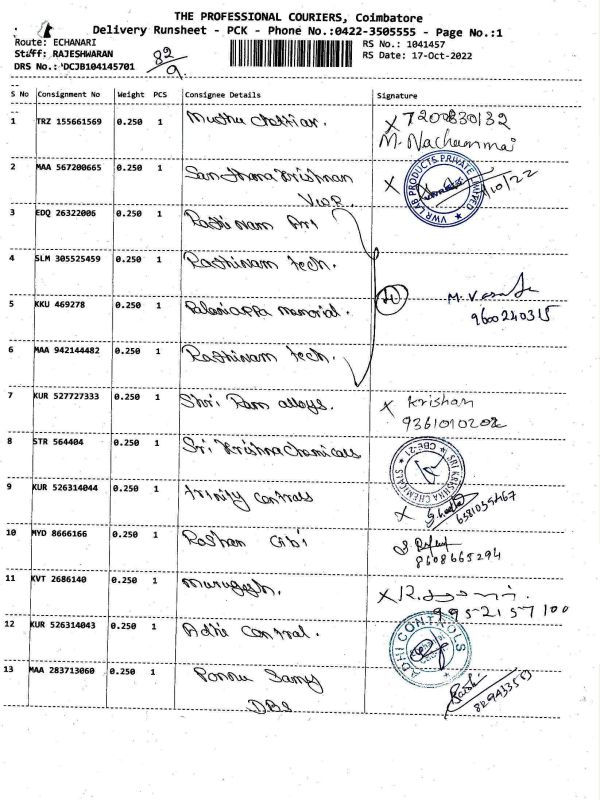 THE PROFESSIONAL COURIERS, Coimbatore
Delivery Runsheet - PCK - Phone No.:0422-3505555 - Page No.:1
Route: ECHANARI
RS No.: 1041457
Staff: RAJESHWARAN
RS Date: 17-Oct-2022
DRS No.: DCJB104145701
82/9
S No Consignment No Weight PCS Consignee Details Signature
1 TRZ 155661569 0.250 1 Muthu Chettiar. X 7200830132
2 MAA 567200665 0.250 1 Santhana Krishnan X
VWR
VWR LAB PRODUCTS PRIVATE LIMITED
3 EDQ 26322006 0.250 1 Rathinam Art
4 SLM 305525459 0.250 1 Rathinam tech.
5 KKU 469278 0.250 1 Palaniappa memorial. M.
9600240315
6 MAA 942144482 0.250 1 Rathinam tech.
7 KUR 527727333 0.250 1 Shri Ram alloys. X Krishan
9361010202
8 STR 564404 0.250 1 Sri Krishna Chemicals
SRI KRISHNA CHEMICALS CBE-21
9 KUR 526314044 0.250 1 trinity controls X
6381039467
10 MYD 8666166 0.250 1 Roshan Gibi
8608665294
11 KVT 2686140 0.250 1 Murugesh. X R.
9952157100
12 KUR 526314043 0.250 1 Adhi Control.
ADHI CONTROLS
13 MAA 283713060 0.250 1 Ponnu Samy